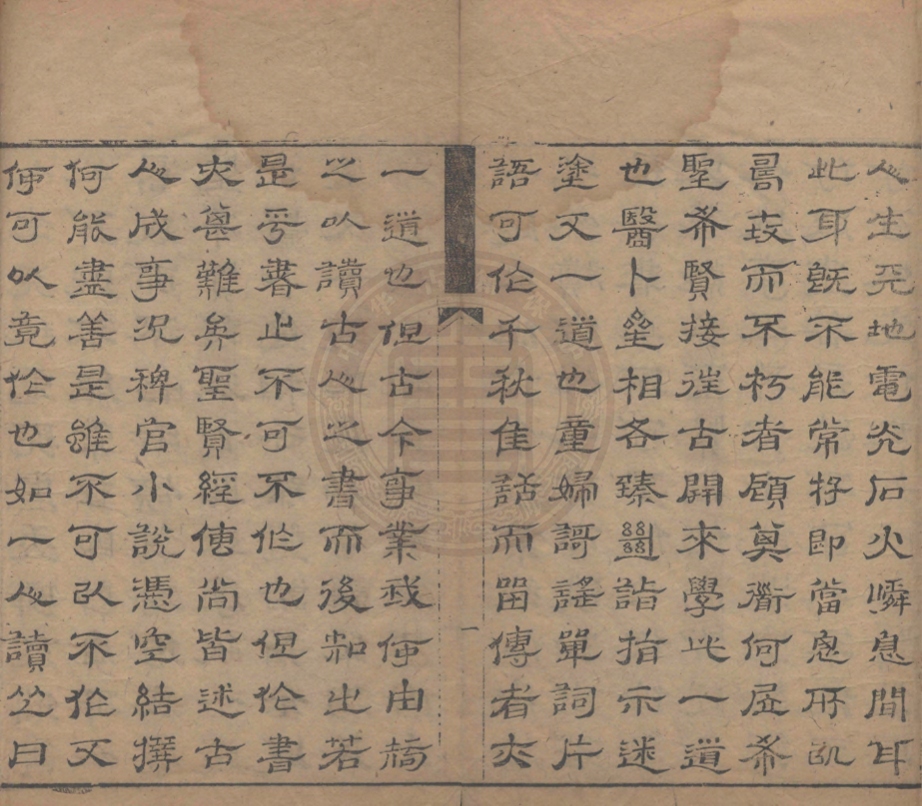 人生天地電光石火瞬息間耳
此身既不能常存即當思所以
而不朽者顧其何居希
聖希賢接往古開來學此一道
也醫卜星相各臻絶詣指示迷
塗又一道也童婦謌謠單詞片
語可作千秋佳話而留傳者亦
一道也但古今事業我何由稽
之以讀古人之書而後知之若
是乎書之不可不作也但作書
亦甚難矣聖賢經傳尚皆述古
人成事况稗官小說憑空結撰
何能盡善是雖不可以不作又
何可以竟作也如一人讀之曰
一